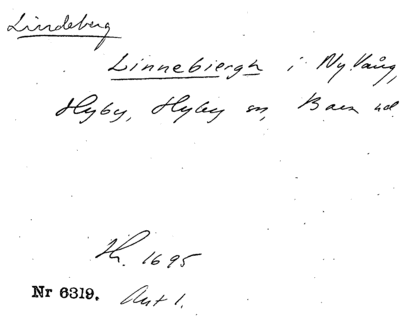 Lindeberg
Linnebiergh i Ny Vång,
Hyby, Hyby sn, Bara hd
Th. 1695
Nr 6319. Akt 1.